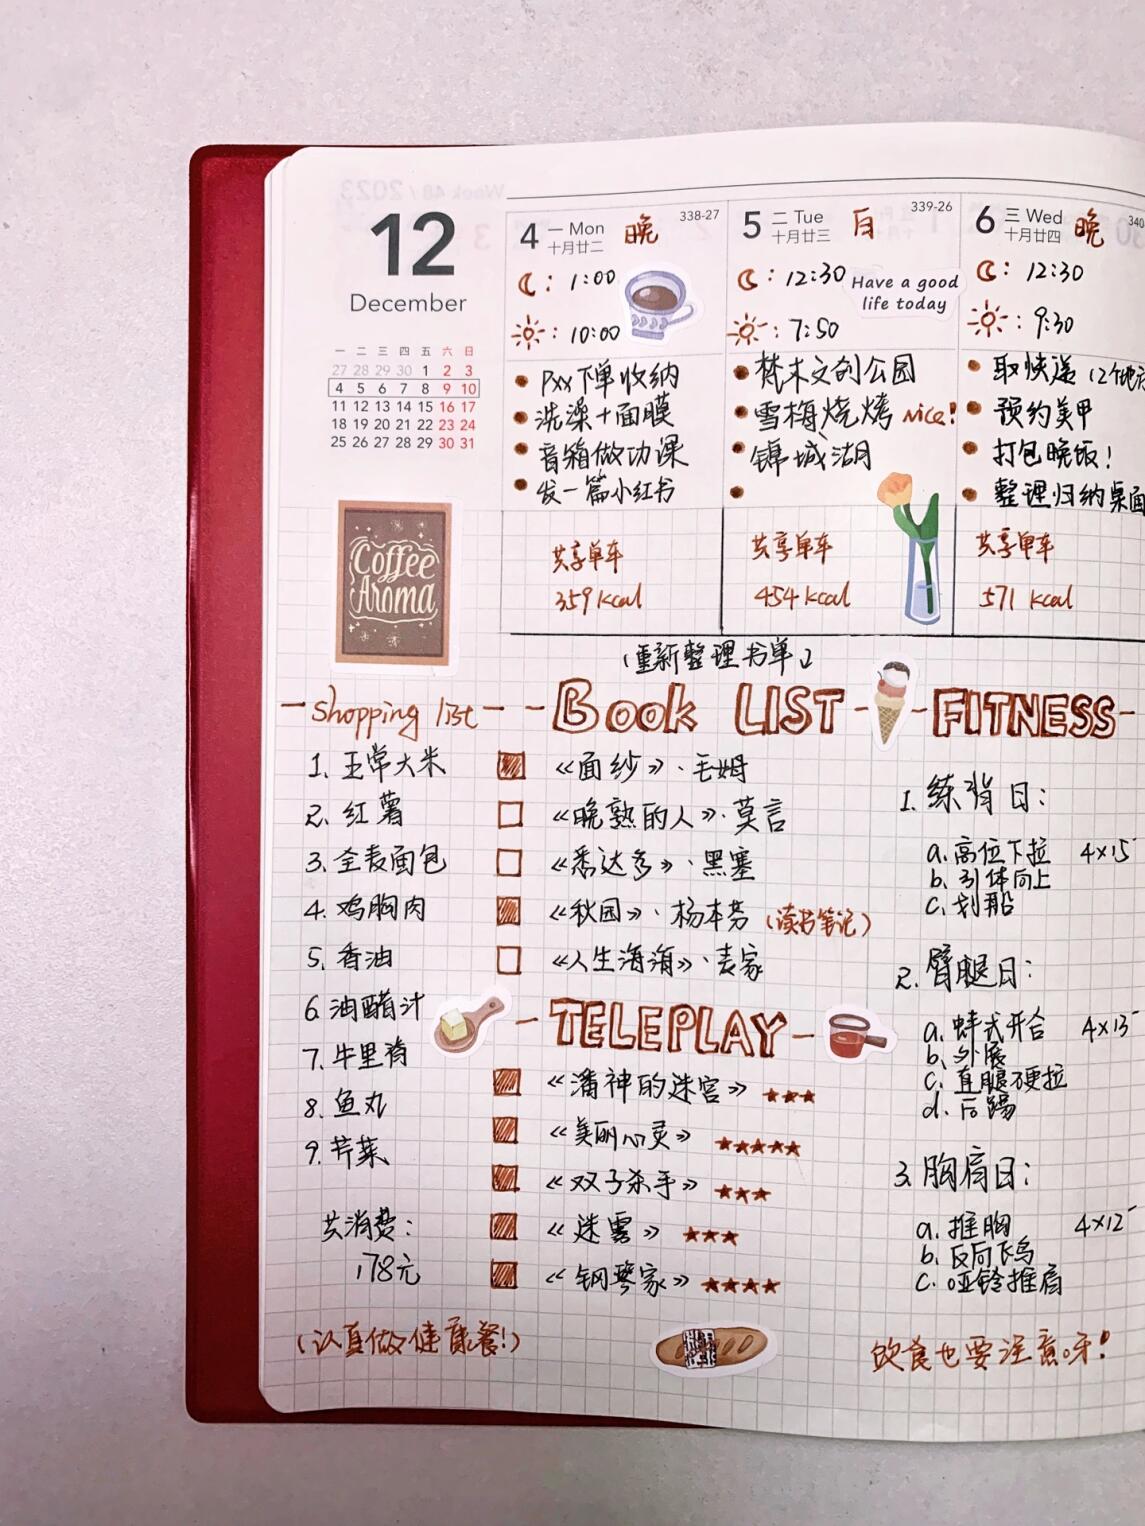 12
December
一 二 三 四 五 六 日
27 28 29 30 1 2 3
4 5 6 7 8 9 10
11 12 13 14 15 16 17
18 19 20 21 22 23 24
25 26 27 28 29 30 31
4 一 Mon 晚 338-27
十月廿二
: 1:00
: 10:00
Pxx下单收纳
洗澡+面膜
音箱做功课
发一篇小红书
共享单车
359 kcal
5 二 Tue 白 339-26
十月廿三
: 12:30
Have a good
life today
: 7:50
梵木文创公园
雪梅烧烤 nice!
锦城湖
共享单车
454 kcal
6 三 Wed 晚 340
十月廿四
: 12:30
: 9:30
取快递 (2个地
预约美甲
打包晚饭!
整理归纳桌面
共享单车
571 kcal
Coffee
Aroma
-shopping list-
1. 五常大米
2. 红薯
3. 全麦面包
4. 鸡胸肉
5. 香油
6. 油醋汁
7. 牛里脊
8. 鱼丸
9. 芹菜
共消费:
178元
(认真做健康餐!)
「重新整理书单」
-Book LIST-
《面纱》·毛姆
《晚熟的人》·莫言
《悉达多》·黑塞
《秋园》·杨本芬 (读书笔记)
《人生海海》·麦家
-TELEPLAY-
《潘神的迷宫》★★★
《美丽心灵》★★★★★
《双子杀手》★★★
《迷雾》★★★
《钢琴家》★★★★
-FITNESS-
1. 练背日:
a. 高位下拉 4×15
b. 引体向上
c. 划船
2. 臀腿日:
a. 蚌式开合 4×15
b. 外展
c. 直腿硬拉
d. 后踢
3. 胸肩日:
a. 推胸 4×12
b. 反向飞鸟
c. 哑铃推肩
饮食也要注意呀!